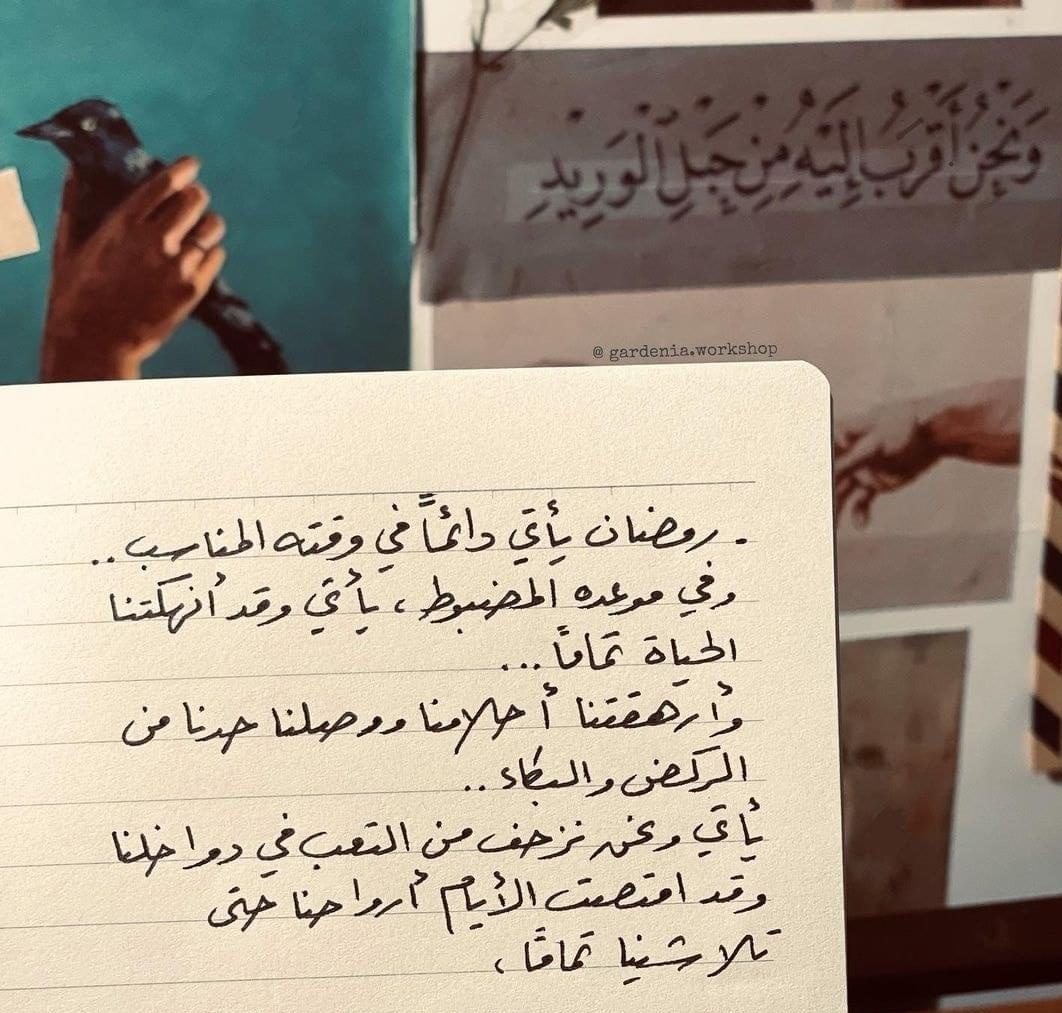 وَنَحْنُ أَقْرَبُ إِلَيْهِ مِنْ حَبْلِ الْوَرِيدِ
@ gardenia.workshop
. رمضان يأتي دائماً في وقته المناسب..
وفي موعده المضبوط، يأتي وقد أنهكتنا
الحياة تماماً...
وأرهقتنا أحلامنا ووصلنا حدنا من
الركض والبكاء..
يأتي ونحن نزحف من التعب في دواخلنا
وقد امتصت الأيام أرواحنا حتى
تلاشينا تماماً،